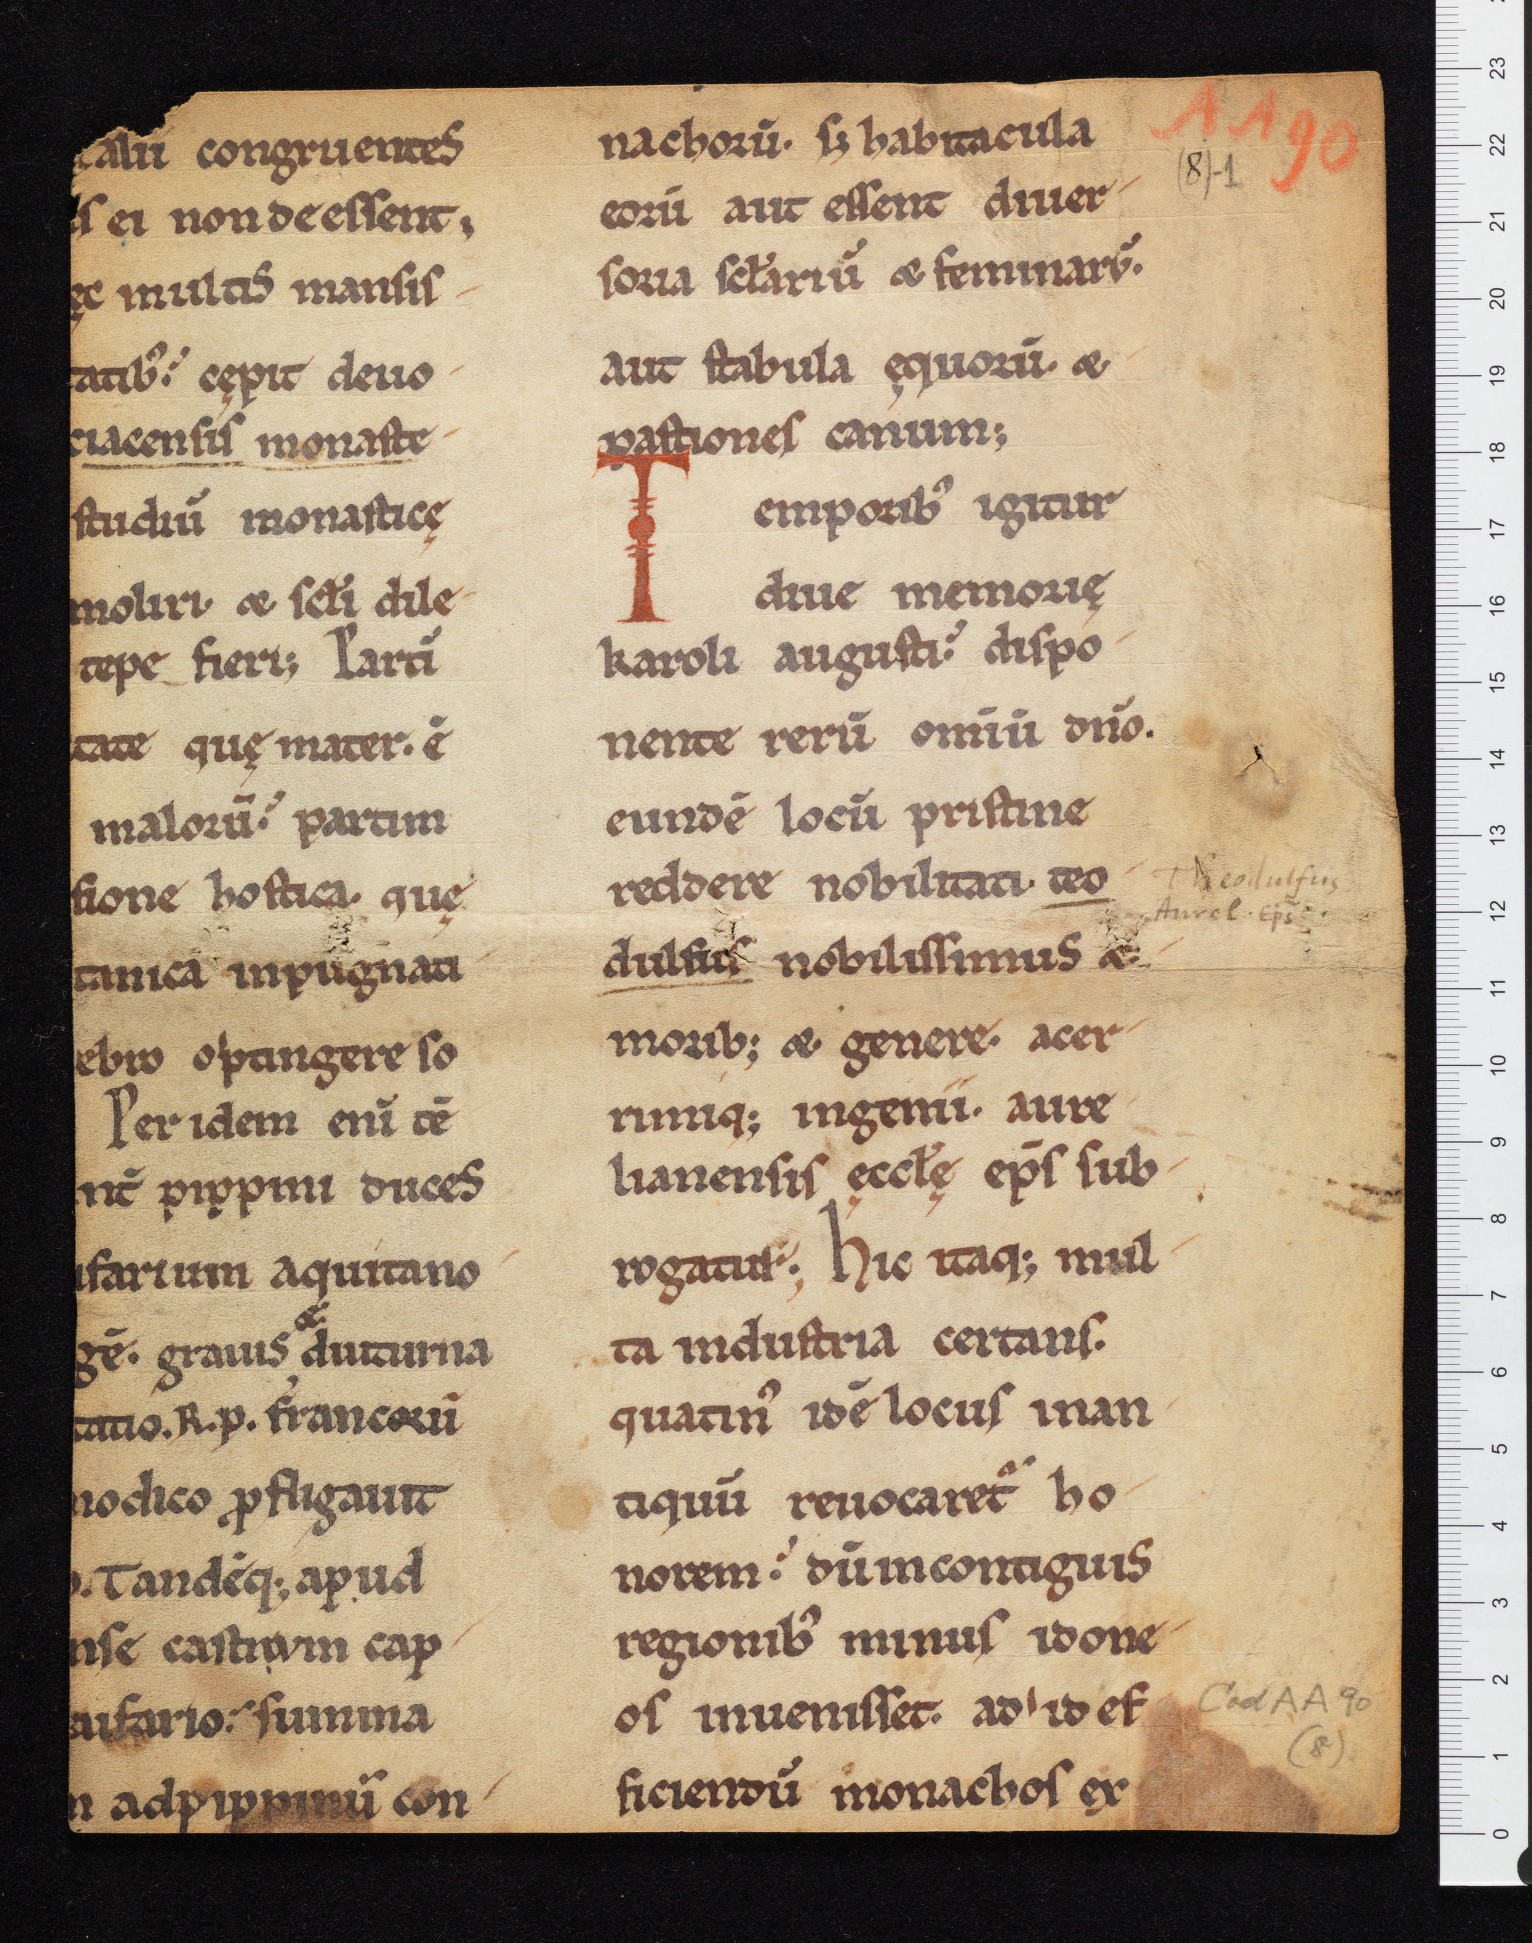 taliū congruentes
is ei non deessent;
ęc multis mansis
tatib᷒: cępit deuo
ciacensis monaste
studiū monasticę
moliri· & scl̄i dile
tepe fieri; Partī
tate quę mater· ē
malorū: partim
sione hostica· quę
tanica inpugnati
ebro optingere so
Per idem enī tē
nt̄ pippini duces
ifarium aquitano
gē· grauis & diuturna
tatio. R.p. francorū
modico ꝓfligauit
o. Tandēq; apud
nse castrum cap
aifario: summa
n ad pippinū con
nachorū· sꝫ habitacula
eorū aut essent diuer
soria scl̄ariū & feminarū.
aut stabula ęquorū· &
pastiones canum;
Temporib᷒ igitur
diue memorię
karoli augusti: dispo
nente rerū om̄iū dn̄o.
eundē locū pristine
reddere nobilitati· teo
dulfus nobilissimus &
morib; & genere· acer
rimiq; ingenii· aure
lianensis ęccl̄ę ep̄s sub
rogatur; Hic itaq; mul
ta industria certans·
quatin᷒ idē locus in an
tiquū reuocaret᷑ ho
norem: dū in contiguis
regionib᷒ minus idone
os inuenisset· ad id ef
ficiendū monachos ex
AA 90
(8)-1
Theodulfus
Aurel. Ep̄s.
Cod AA 90
(8)
23
22
21
20
19
18
17
16
15
14
13
12
11
10
9
8
7
6
5
4
3
2
1
0